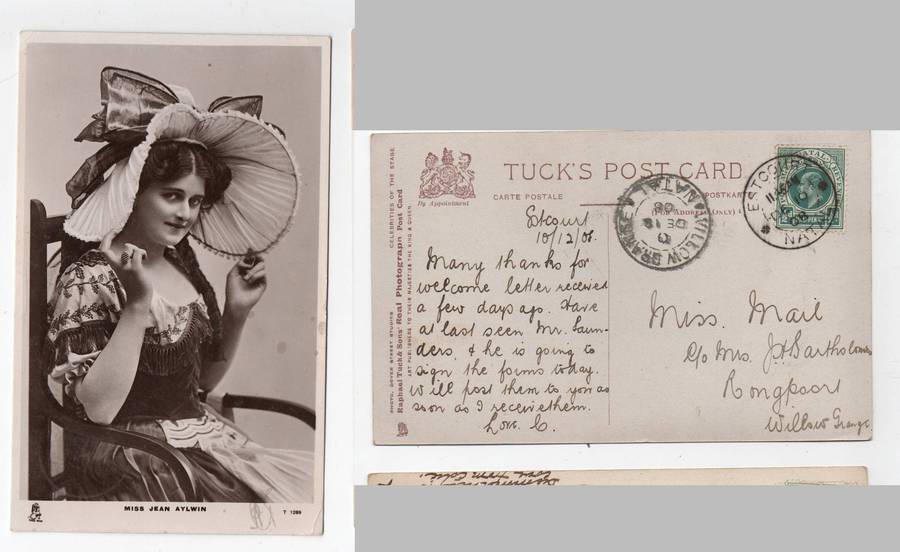 MISS JEAN AYLWIN
T 1289
TUCK'S POST CARD
CARTE POSTALE
POSTKAR
(FOR ADDRESS ONLY)
By Appointment
CELEBRITIES OF THE STAGE
PHOTO, DOVER STREET STUDIOS
Raphael Tuck & Sons' Real Photograph Post Card
ART PUBLISHERS TO THEIR MAJESTIES THE KING & QUEEN
Estcourt
10/12/08.
Many thanks for
welcome letter received
a few days ago. Have
at last seen Mr. Saun-
ders, & he is going to
sign the forms today.
Will post them to you as
soon as I receive them.
Love. C.
WILLOW GRANGE
DE 12
08
NATAL
ESTCOURT
NATAL
Miss. Mail
C/o Mrs. J.H Bartholomew
Rongpoort
Willow Grange